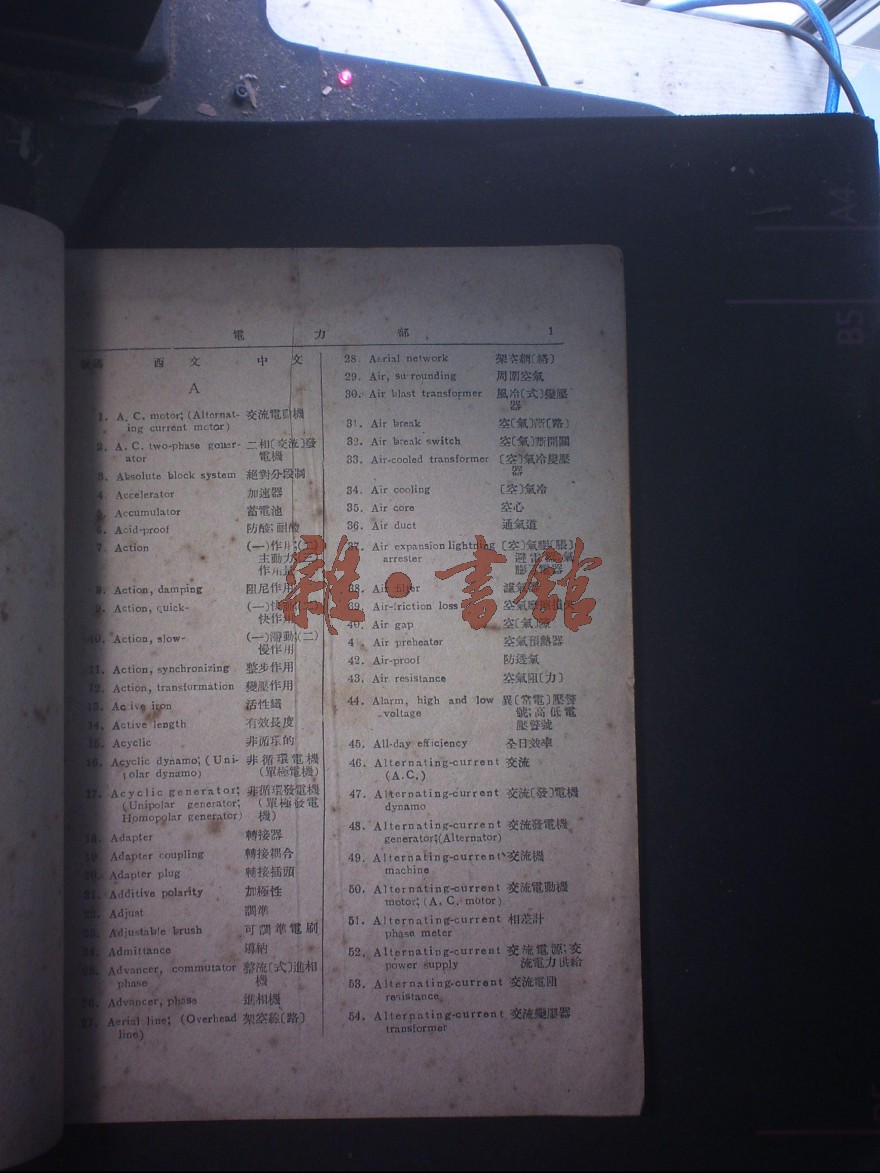 電 力 部 1
號碼 西 文 中 文
A
1. A. C. motor; (Alternat- 交流電動機
ing current motor)
2. A. C. two-phase gener- 二相〔交流〕發
ator 電機
3. Absolute block system 絕對分段制
4. Accelerator 加速器
5. Accumulator 蓄電池
6. Acid-proof 防酸；耐酸
7. Action (一)作用；(二)
主動力
作用量
8. Action, damping 阻尼作用
9. Action, quick- (一)快 (二)
快作用
10. Action, slow- (一)滯動；(二)
慢作用
11. Action, synchronizing 整步作用
12. Action, transformation 變壓作用
13. Active iron 活性鐵
14. Active length 有效長度
15. Acyclic 非循環的
16. Acyclic dynamo; (Uni- 非循環電機
polar dynamo) (單極電機)
17. Acyclic generator; 非循環發電機
(Unipolar generator; (單極發電
Homopolar generator) 機)
18. Adapter 轉接器
19. Adapter coupling 轉接耦合
20. Adapter plug 轉接插頭
21. Additive polarity 加極性
22. Adjust 調準
23. Adjustable brush 可調準電刷
24. Admittance 導納
25. Advancer, commutator 整流〔式〕進相
phase 機
26. Advancer, phase 進相機
27. Aerial line; (Overhead 架空線〔路〕
line)
28. Aerial network 架空網〔絡〕
29. Air, surrounding 周圍空氣
30. Air blast transformer 風冷〔式〕變壓
器
31. Air break 空〔氣〕斷〔路〕
32. Air break switch 空〔氣〕斷開關
33. Air-cooled transformer 〔空〕氣冷變壓
器
34. Air cooling 〔空〕氣冷
35. Air core 空心
36. Air duct 通氣道
37. Air expansion lightning 〔空〕氣膨〔脹〕
arrester 避電器
器
38. Air filter 濾氣
39. Air-friction loss 空氣摩擦損失
40. Air gap 空〔氣〕隙
4 Air preheater 空氣預熱器
42. Air-proof 防透氣
43. Air resistance 空氣阻〔力〕
44. Alarm, high and low 異〔常電〕壓警
voltage 號；高低電
壓警號
45. All-day efficiency 全日效率
46. Alternating-current 交流
(A.C.)
47. Alternating-current 交流〔發〕電機
dynamo
48. Alternating-current 交流發電機
generator;(Alternator)
49. Alternating-current 交流機
machine
50. Alternating-current 交流電動機
motor; (A. C. motor)
51. Alternating-current 相差計
phase meter
52. Alternating-current 交流電源；交
power supply 流電力供給
53. Alternating-current 交流電阻
resistance
54. Alternating-current 交流變壓器
transformer
雜·書館
A4
B5